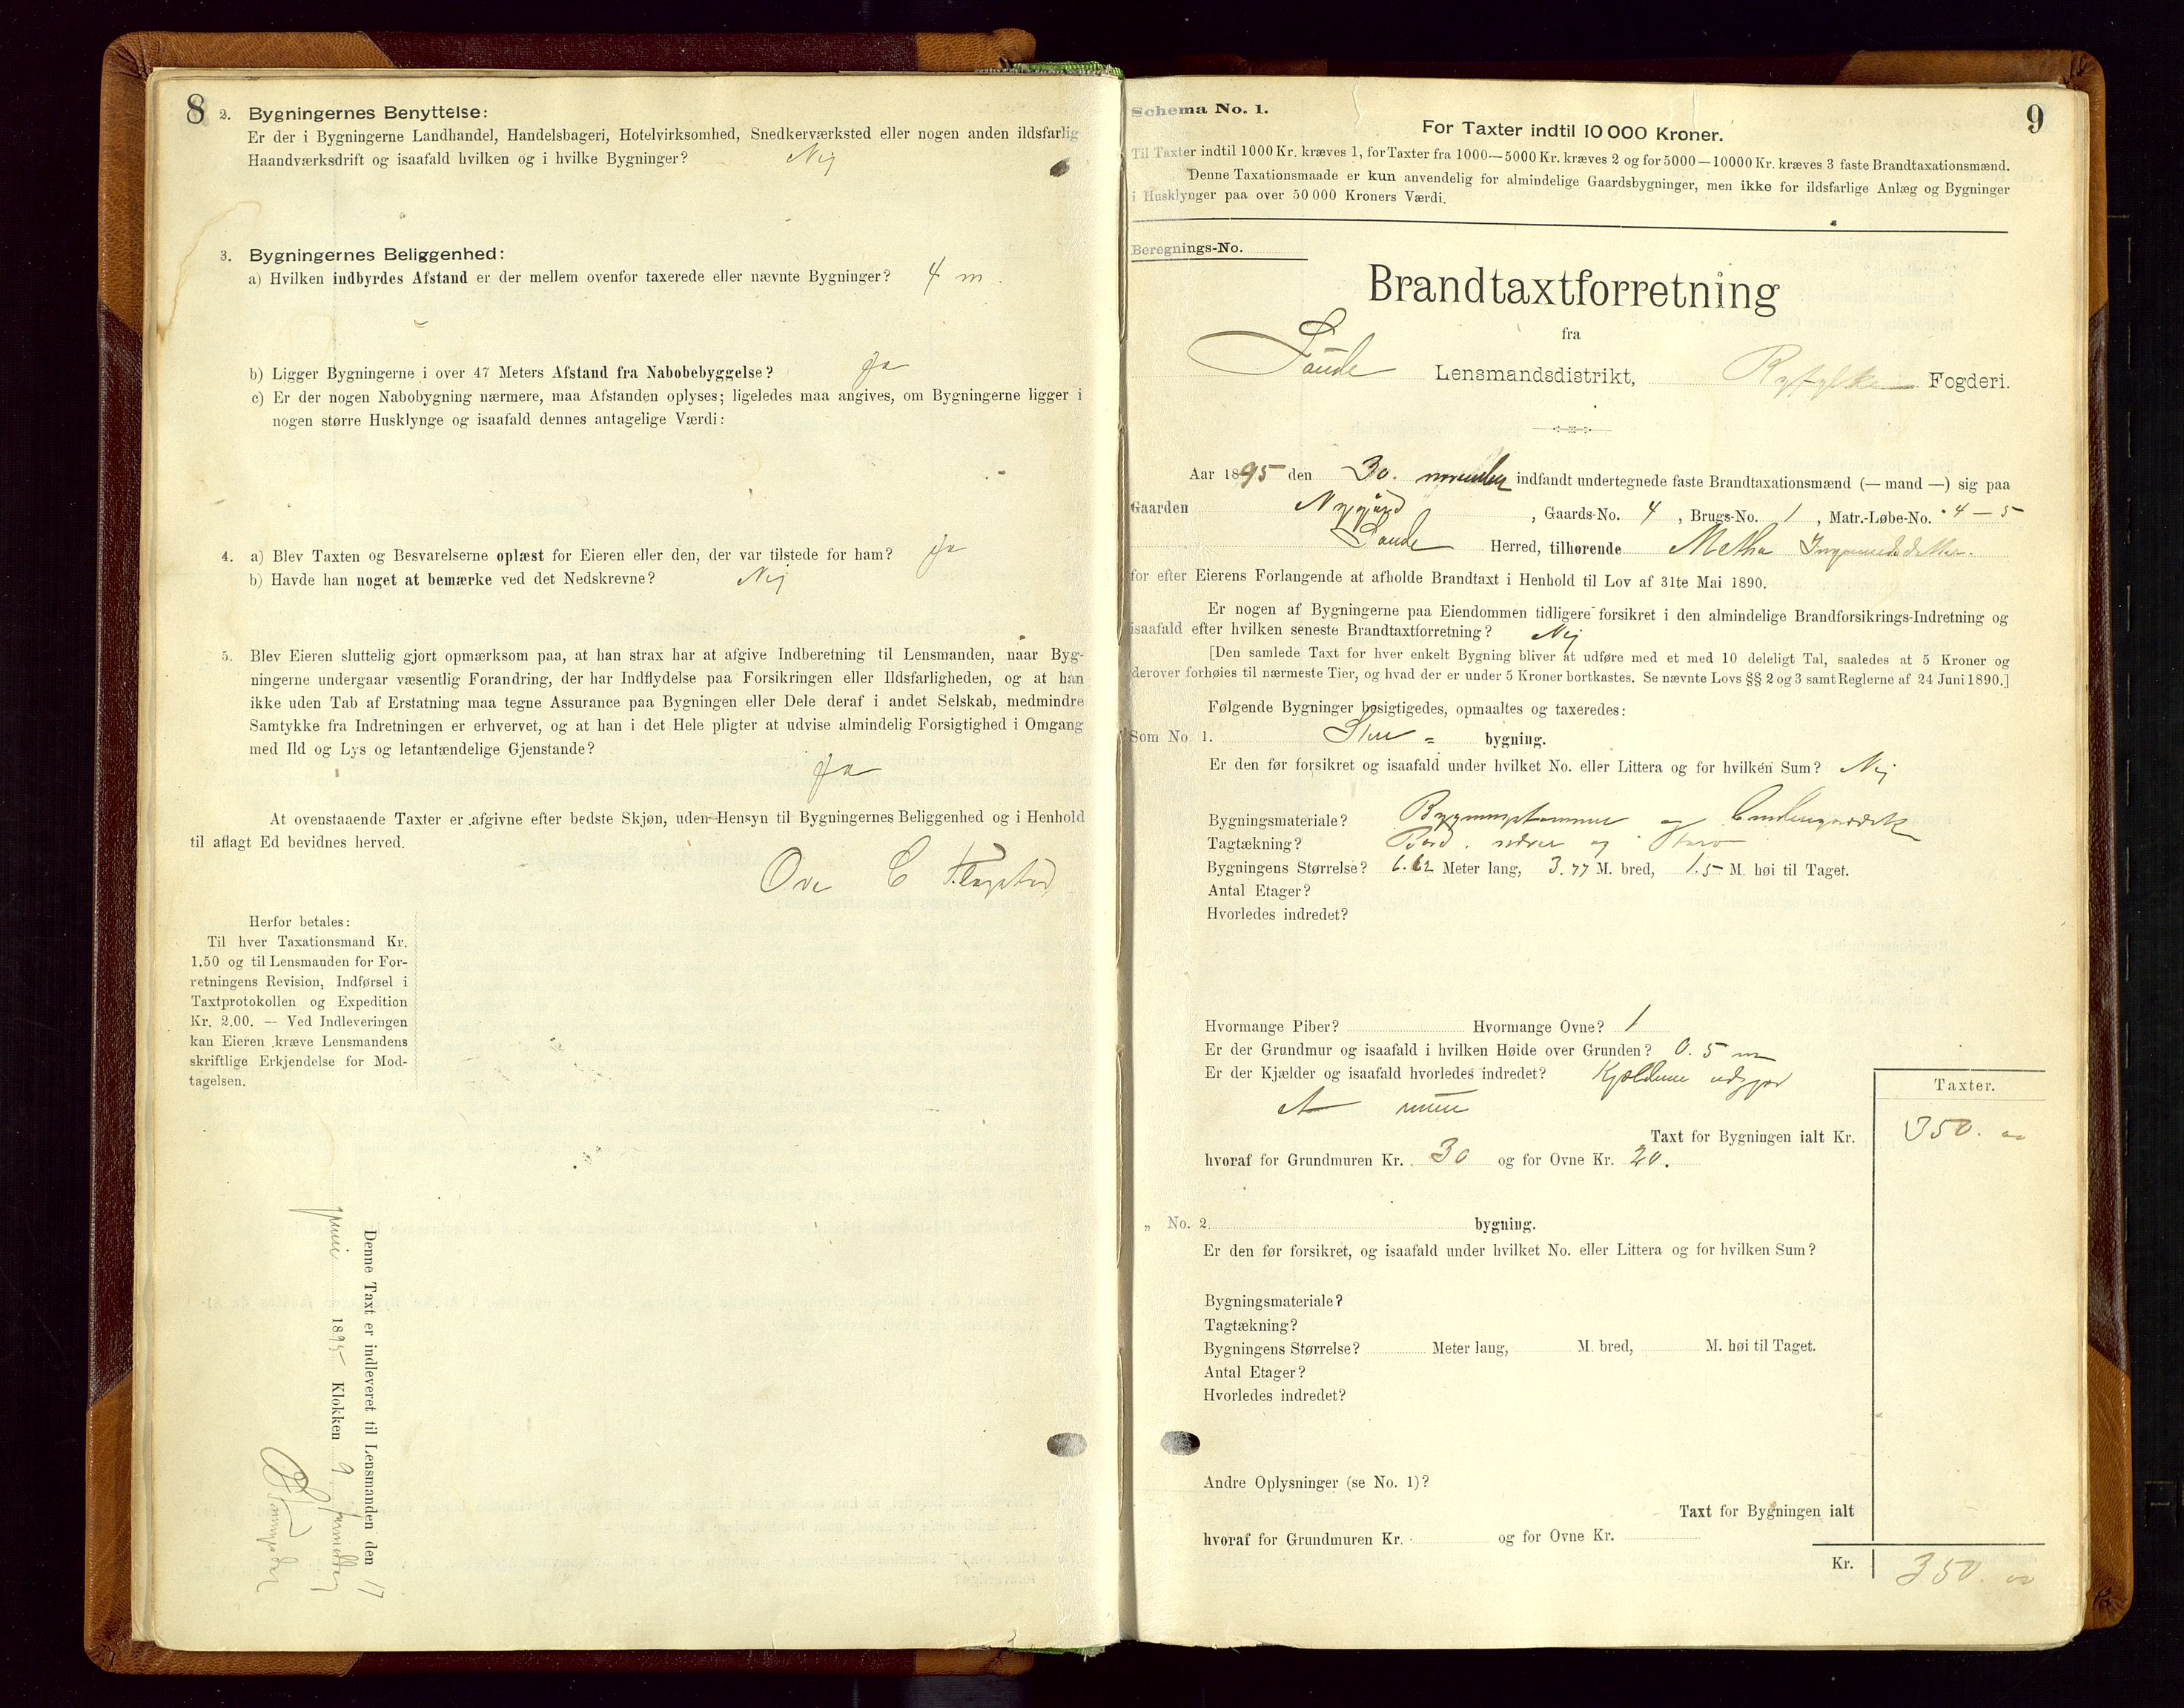 8
2. Bygningernes Benyttelse:
Er der i Bygningerne Landhandel, Handelsbageri, Hotelvirksomhed, Snedkerværksted eller nogen anden ildsfarlig
Haandværksdrift og isaafald hvilken og i hvilke Bygninger? Nej
3. Bygningernes Beliggenhed:
a) Hvilken indbyrdes Afstand er der mellem ovenfor taxerede eller nævnte Bygninger? 4 m.
b) Ligger Bygningerne i over 47 Meters Afstand fra Nabobebyggelse? Ja
c) Er der nogen Nabobygning nærmere, maa Afstanden oplyses; ligeledes maa angives, om Bygningerne ligger i
nogen større Husklynge og isaafald dennes antagelige Værdi:
4. a) Blev Taxten og Besvarelserne oplæst for Eieren eller den, der var tilstede for ham? Ja
b) Havde han noget at bemærke ved det Nedskrevne? Nej
5. Blev Eieren sluttelig gjort opmærksom paa, at han strax har at afgive Indberetning til Lensmanden, naar Byg-
ningerne undergaar væsentlig Forandring, der har Indflydelse paa Forsikringen eller Ildsfarligheden, og at han
ikke uden Tab af Erstatning maa tegne Assurance paa Bygningen eller Dele deraf i andet Selskab, medmindre
Samtykke fra Indretningen er erhvervet, og at han i det Hele pligter at udvise almindelig Forsigtighed i Omgang
med Ild og Lys og letantændelige Gjenstande?
Ja
At ovenstaaende Taxter er afgivne efter bedste Skjøn, uden Hensyn til Bygningernes Beliggenhed og i Henhold
til aflagt Ed bevidnes herved.
Ove C
Herfor betales:
Til hver Taxationsmand Kr.
1.50 og til Lensmanden for For-
retningens Revision, Indførsel i
Taxtprotokollen og Expedition
Kr. 2.00. — Ved Indleveringen
kan Eieren kræve Lensmandens
skriftlige Erkjendelse for Mod-
tagelsen.
Denne Taxt er indleveret til Lensmanden den 17
1895 Klokken 9 formiddag
9
Schema No. 1.
For Taxter indtil 10 000 Kroner.
Til Taxter indtil 1000 Kr. kræves 1, for Taxter fra 1000—5000 Kr. kræves 2 og for 5000—10000 Kr. kræves 3 faste Brandtaxationsmænd.
Denne Taxationsmaade er kun anvendelig for almindelige Gaardsbygninger, men ikke for ildsfarlige Anlæg og Bygninger
i Husklynger paa over 50 000 Kroners Værdi.
Beregnings-No.
Brandtaxtforretning
fra
Saude Lensmandsdistrikt, Ryfylke Fogderi.
Aar 1895 den 30. november indfandt undertegnede faste Brandtaxationsmænd (— mand —) sig paa
Gaarden Nygård, Gaards-No. 4, Brugs-No. 1, Matr.-Løbe-No. 4-5
Saude Herred, tilhørende Metha
for efter Eierens Forlangende at afholde Brandtaxt i Henhold til Lov af 31te Mai 1890.
Er nogen af Bygningerne paa Eiendommen tidligere forsikret i den almindelige Brandforsikrings-Indretning og
isaafald efter hvilken seneste Brandtaxtforretning? Nej
[Den samlede Taxt for hver enkelt Bygning bliver at udføre med et med 10 deleligt Tal, saaledes at 5 Kroner og
derover forhøies til nærmeste Tier, og hvad der er under 5 Kroner bortkastes. Se nævnte Lovs §§ 2 og 3 samt Reglerne af 24 Juni 1890.]
Følgende Bygninger besigtigedes, opmaaltes og taxeredes:
Som No. 1. Stue = bygning.
Er den før forsikret og isaafald under hvilket No. eller Littera og for hvilken Sum? Nej
Bygningsmateriale? Bygningstømmer og
Tagtækning? Bord, næver og
Bygningens Størrelse? 6.62 Meter lang, 3.77 M. bred, 1.5 M. høi til Taget.
Antal Etager?
Hvorledes indredet?
Hvormange Piber? Hvormange Ovne? 1
Er der Grundmur og isaafald i hvilken Høide over Grunden? 0.5 m
Er der Kjælder og isaafald hvorledes indredet? Kjælderen udgjør
Taxter.
Taxt for Bygningen ialt Kr. 350. 00
hvoraf for Grundmuren Kr. 30 og for Ovne Kr. 20.
„ No. 2 bygning.
Er den før forsikret, og isaafald under hvilket No. eller Littera og for hvilken Sum?
Bygningsmateriale?
Tagtækning?
Bygningens Størrelse? Meter lang, M. bred, M. høi til Taget.
Antal Etager?
Hvorledes indredet?
Andre Oplysninger (se No. 1)?
Taxt for Bygningen ialt
hvoraf for Grundmuren Kr. og for Ovne Kr.
Kr. 350. 00